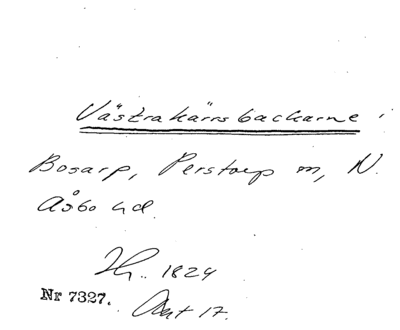 Västrakärrsbackarne i
Bosarp, Perstorp m, N.
Åsbo hd.
1824
Nr 7327. Akt 17.